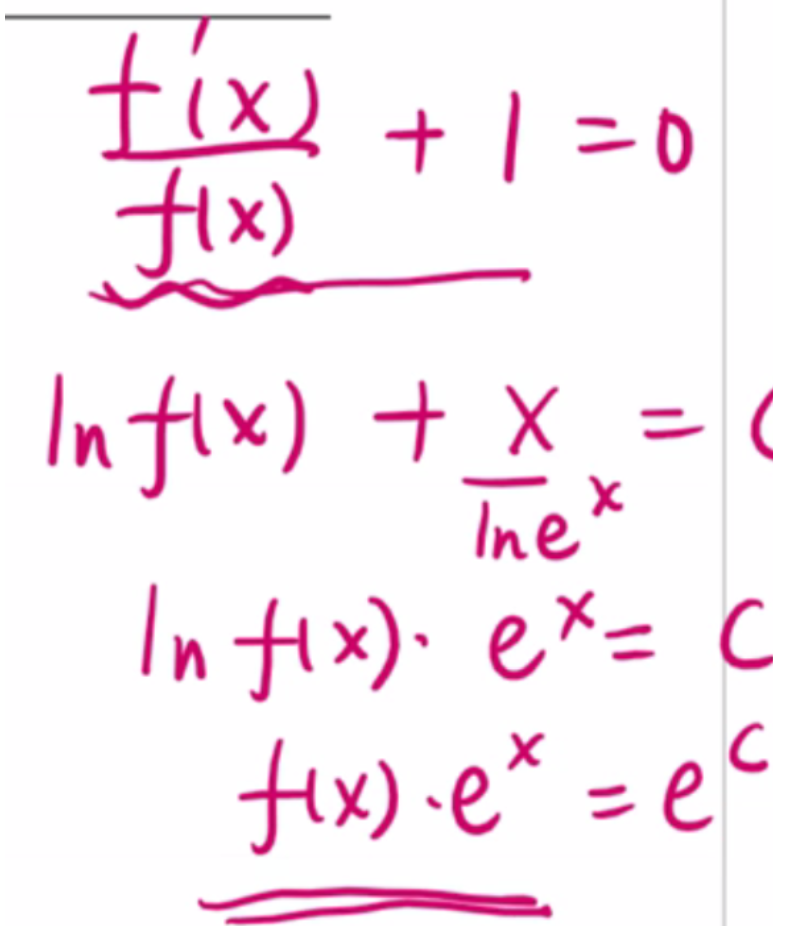 f'(x)/f(x) + 1 = 0
ln f(x) + x = C
ln e^x
ln f(x) · e^x = C
f(x) · e^x = e^C